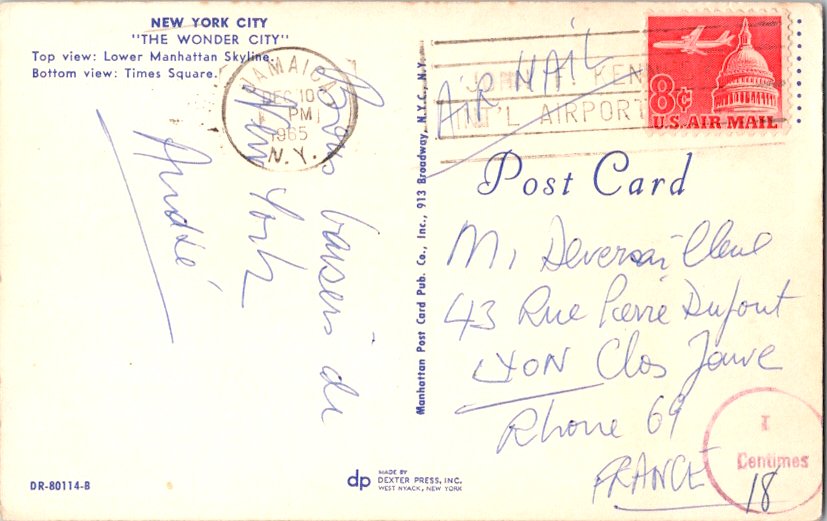 NEW YORK CITY
"THE WONDER CITY"
Top view: Lower Manhattan Skyline.
Bottom view: Times Square.
JAMAICA
DEC 10
PM
1965
N.Y.
Bons baisers de
New York
André
Manhattan Post Card Pub. Co., Inc., 913 Broadway, N.Y.C., N.Y.
AIR MAIL
JOHN F. KEN
INT'L AIRPORT
8¢
U.S. AIR MAIL
Post Card
M.
43 Rue Pierre Dupont
LYON Clos Jouve
Rhone 69
FRANCE
T
Centimes
18
DR-80114-B
dp
MADE BY
DEXTER PRESS, INC.
WEST NYACK, NEW YORK